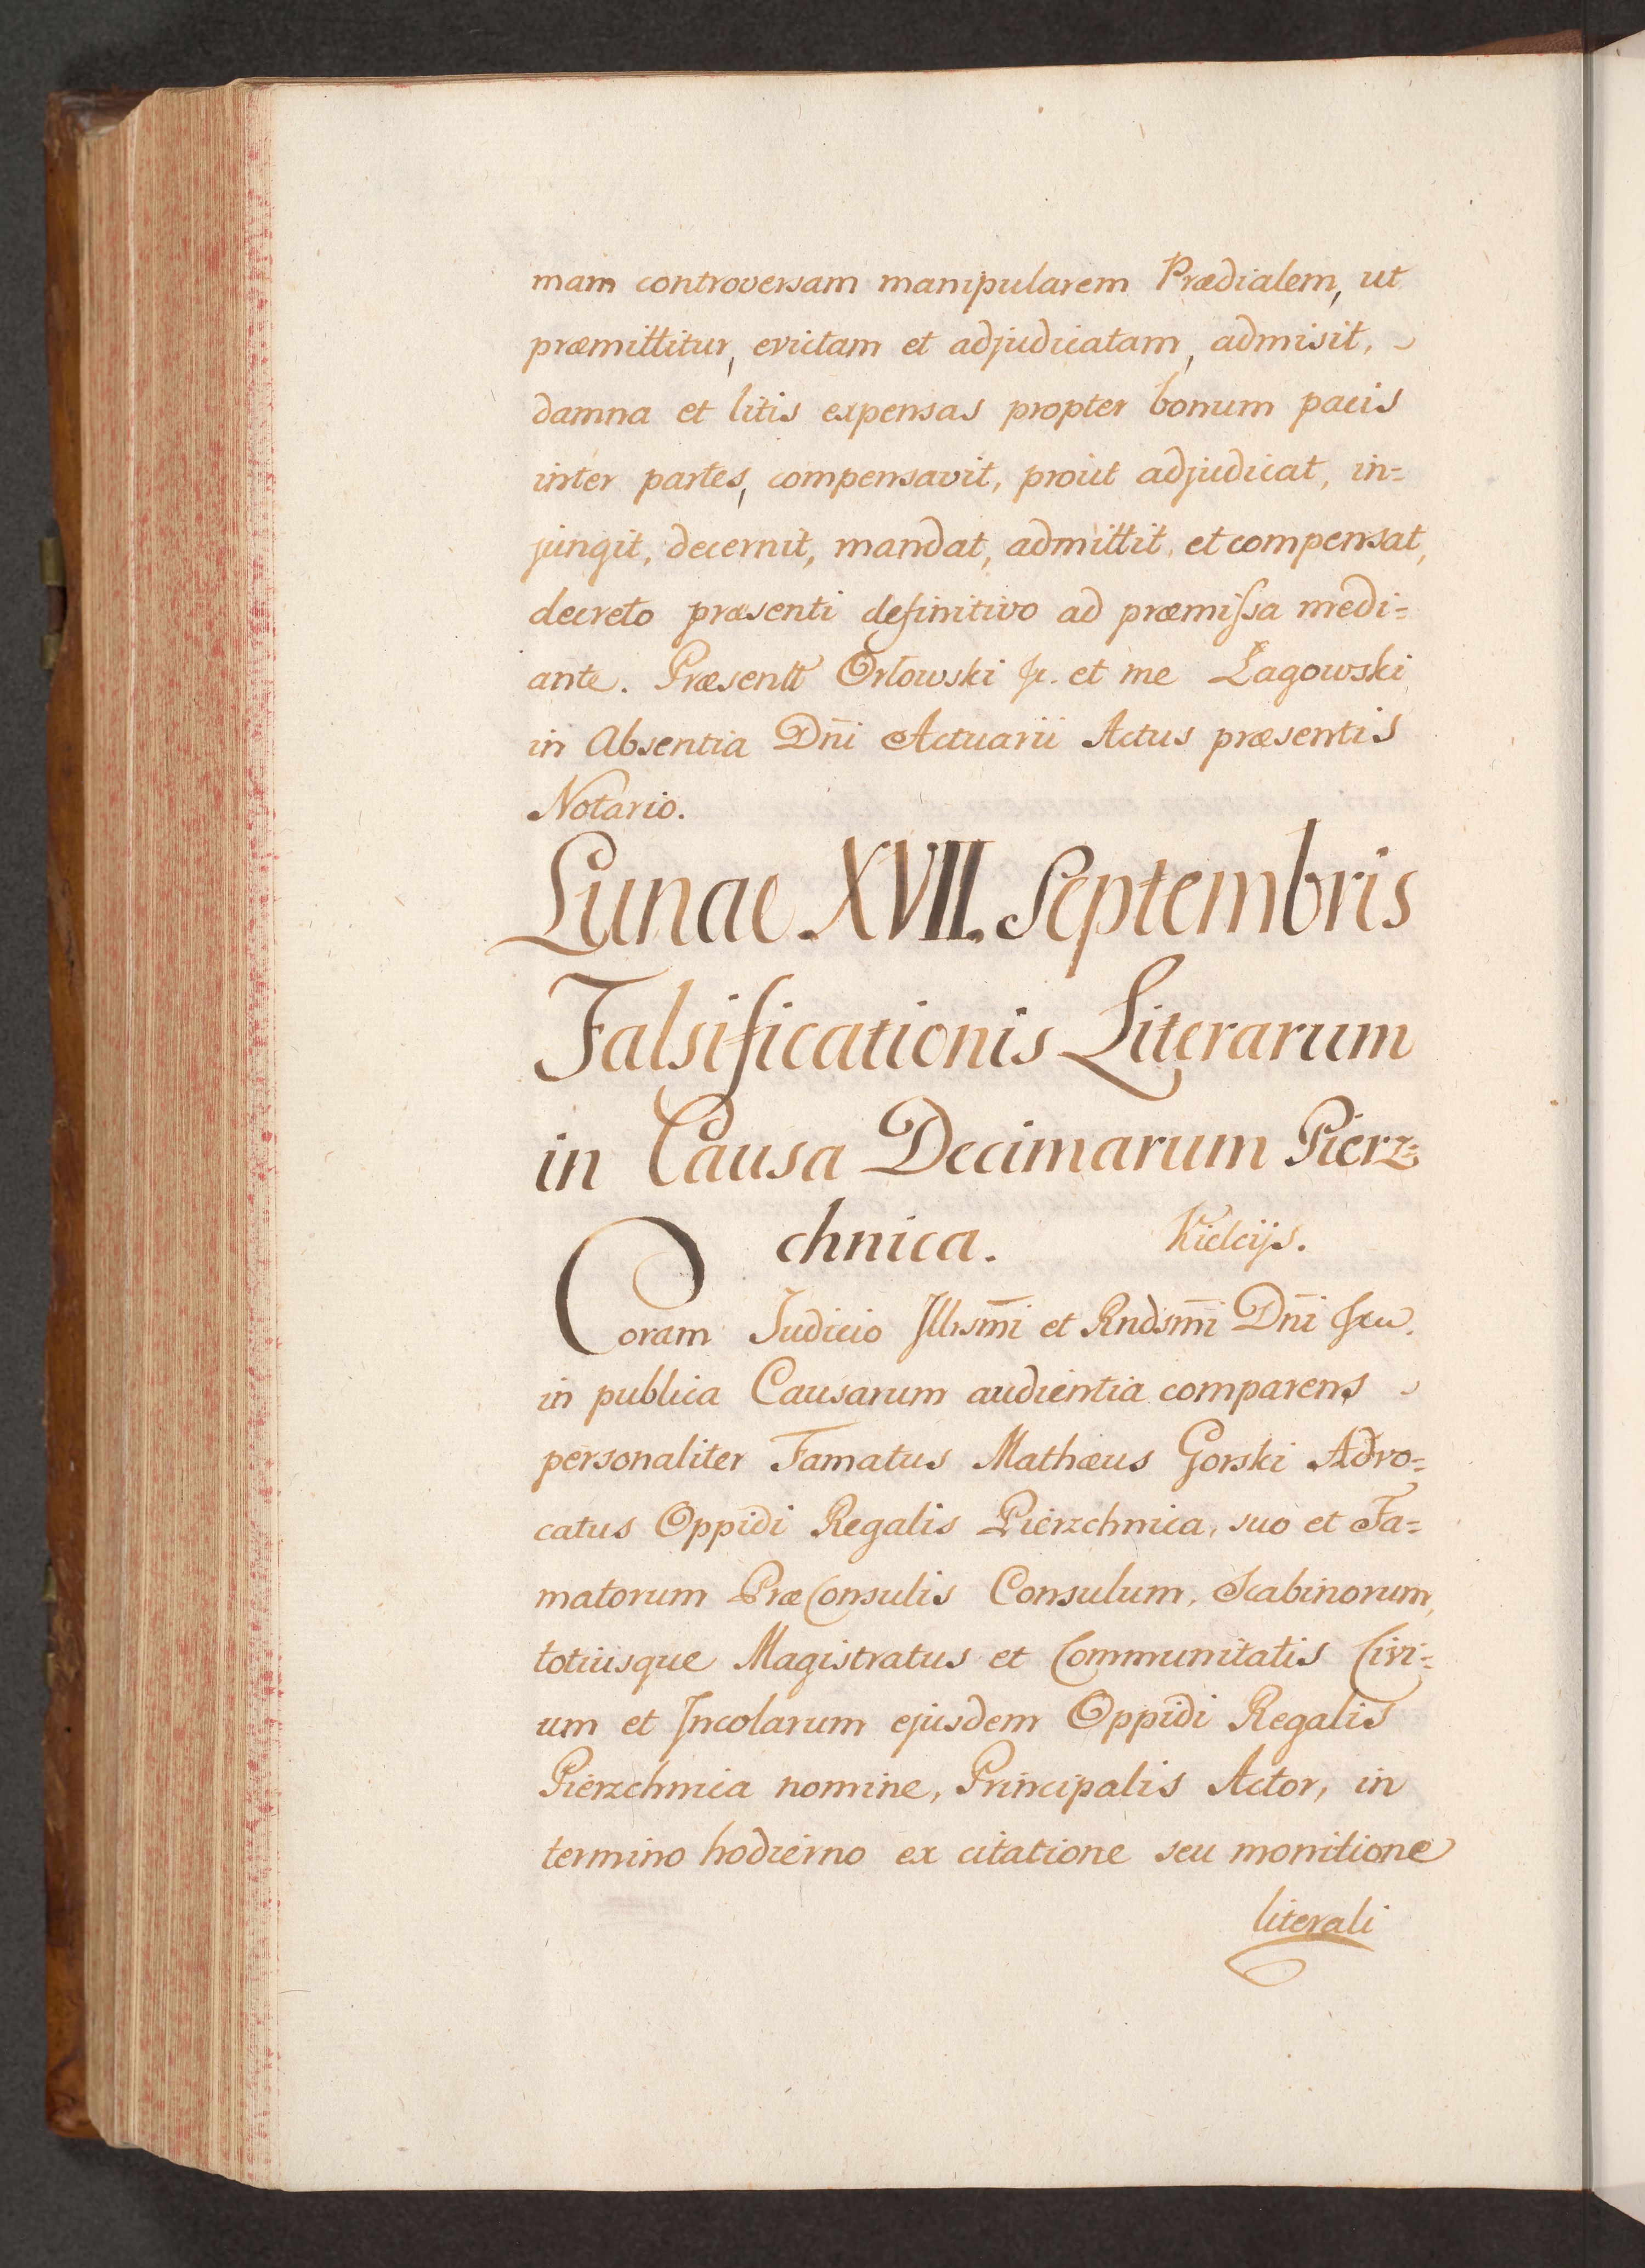 mam controversam manipularem Prædialem, ut
præmittitur, evictam et adjudicatam, admisit,
damna et litis expensas propter bonum pacis
inter partes, compensavit, proùt adjudicat, in=
jungit, decernit, mandat, admittit, et compensat,
decreto præsenti definitivo ad præmiſsa medi=
ante. Præsentt Orłowski et me Łagowski
in Absentia Dn̄i Actuarii Actus præsentis
Notario.
Lunae XVII. Septembris
Falsificationis Literarum
in Causa Decimarum Pierz=
chnica. Kielcijs.
Coram Judicio Jllism̄i et Rndsm̄i Dn̄i
in publica Causarum audientia comparens
personaliter Famatus Mathæus Gorski Advo=
catus Oppidi Regalis Pierzchnica, suo et Fa=
matorum PræConsulis Consulum, Scabinorum,
totiusque Magistratus et Communitatis Civi=
um et Jncolarum ejusdem Oppidi Regalis
Pierzchnica nomine, Principalis Actor, in
termino hodierno ex citatione seu monitione
literali